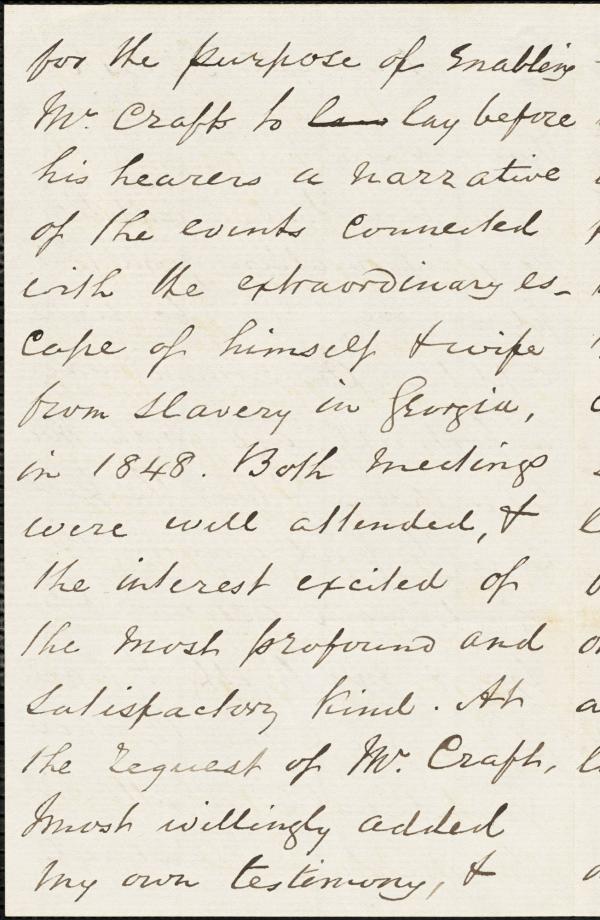 for the purpose of enabling
Mr. Craft to lay before
his hearers a narrative
of the events connected
with the extraordinary es-
cape of himself & wife
from slavery in Georgia,
in 1848. Both meetings
were well attended, &
the interest excited of
the most profound and
satisfactory kind. At
the request of Mr. Craft,
most willingly added
my own testimony, &